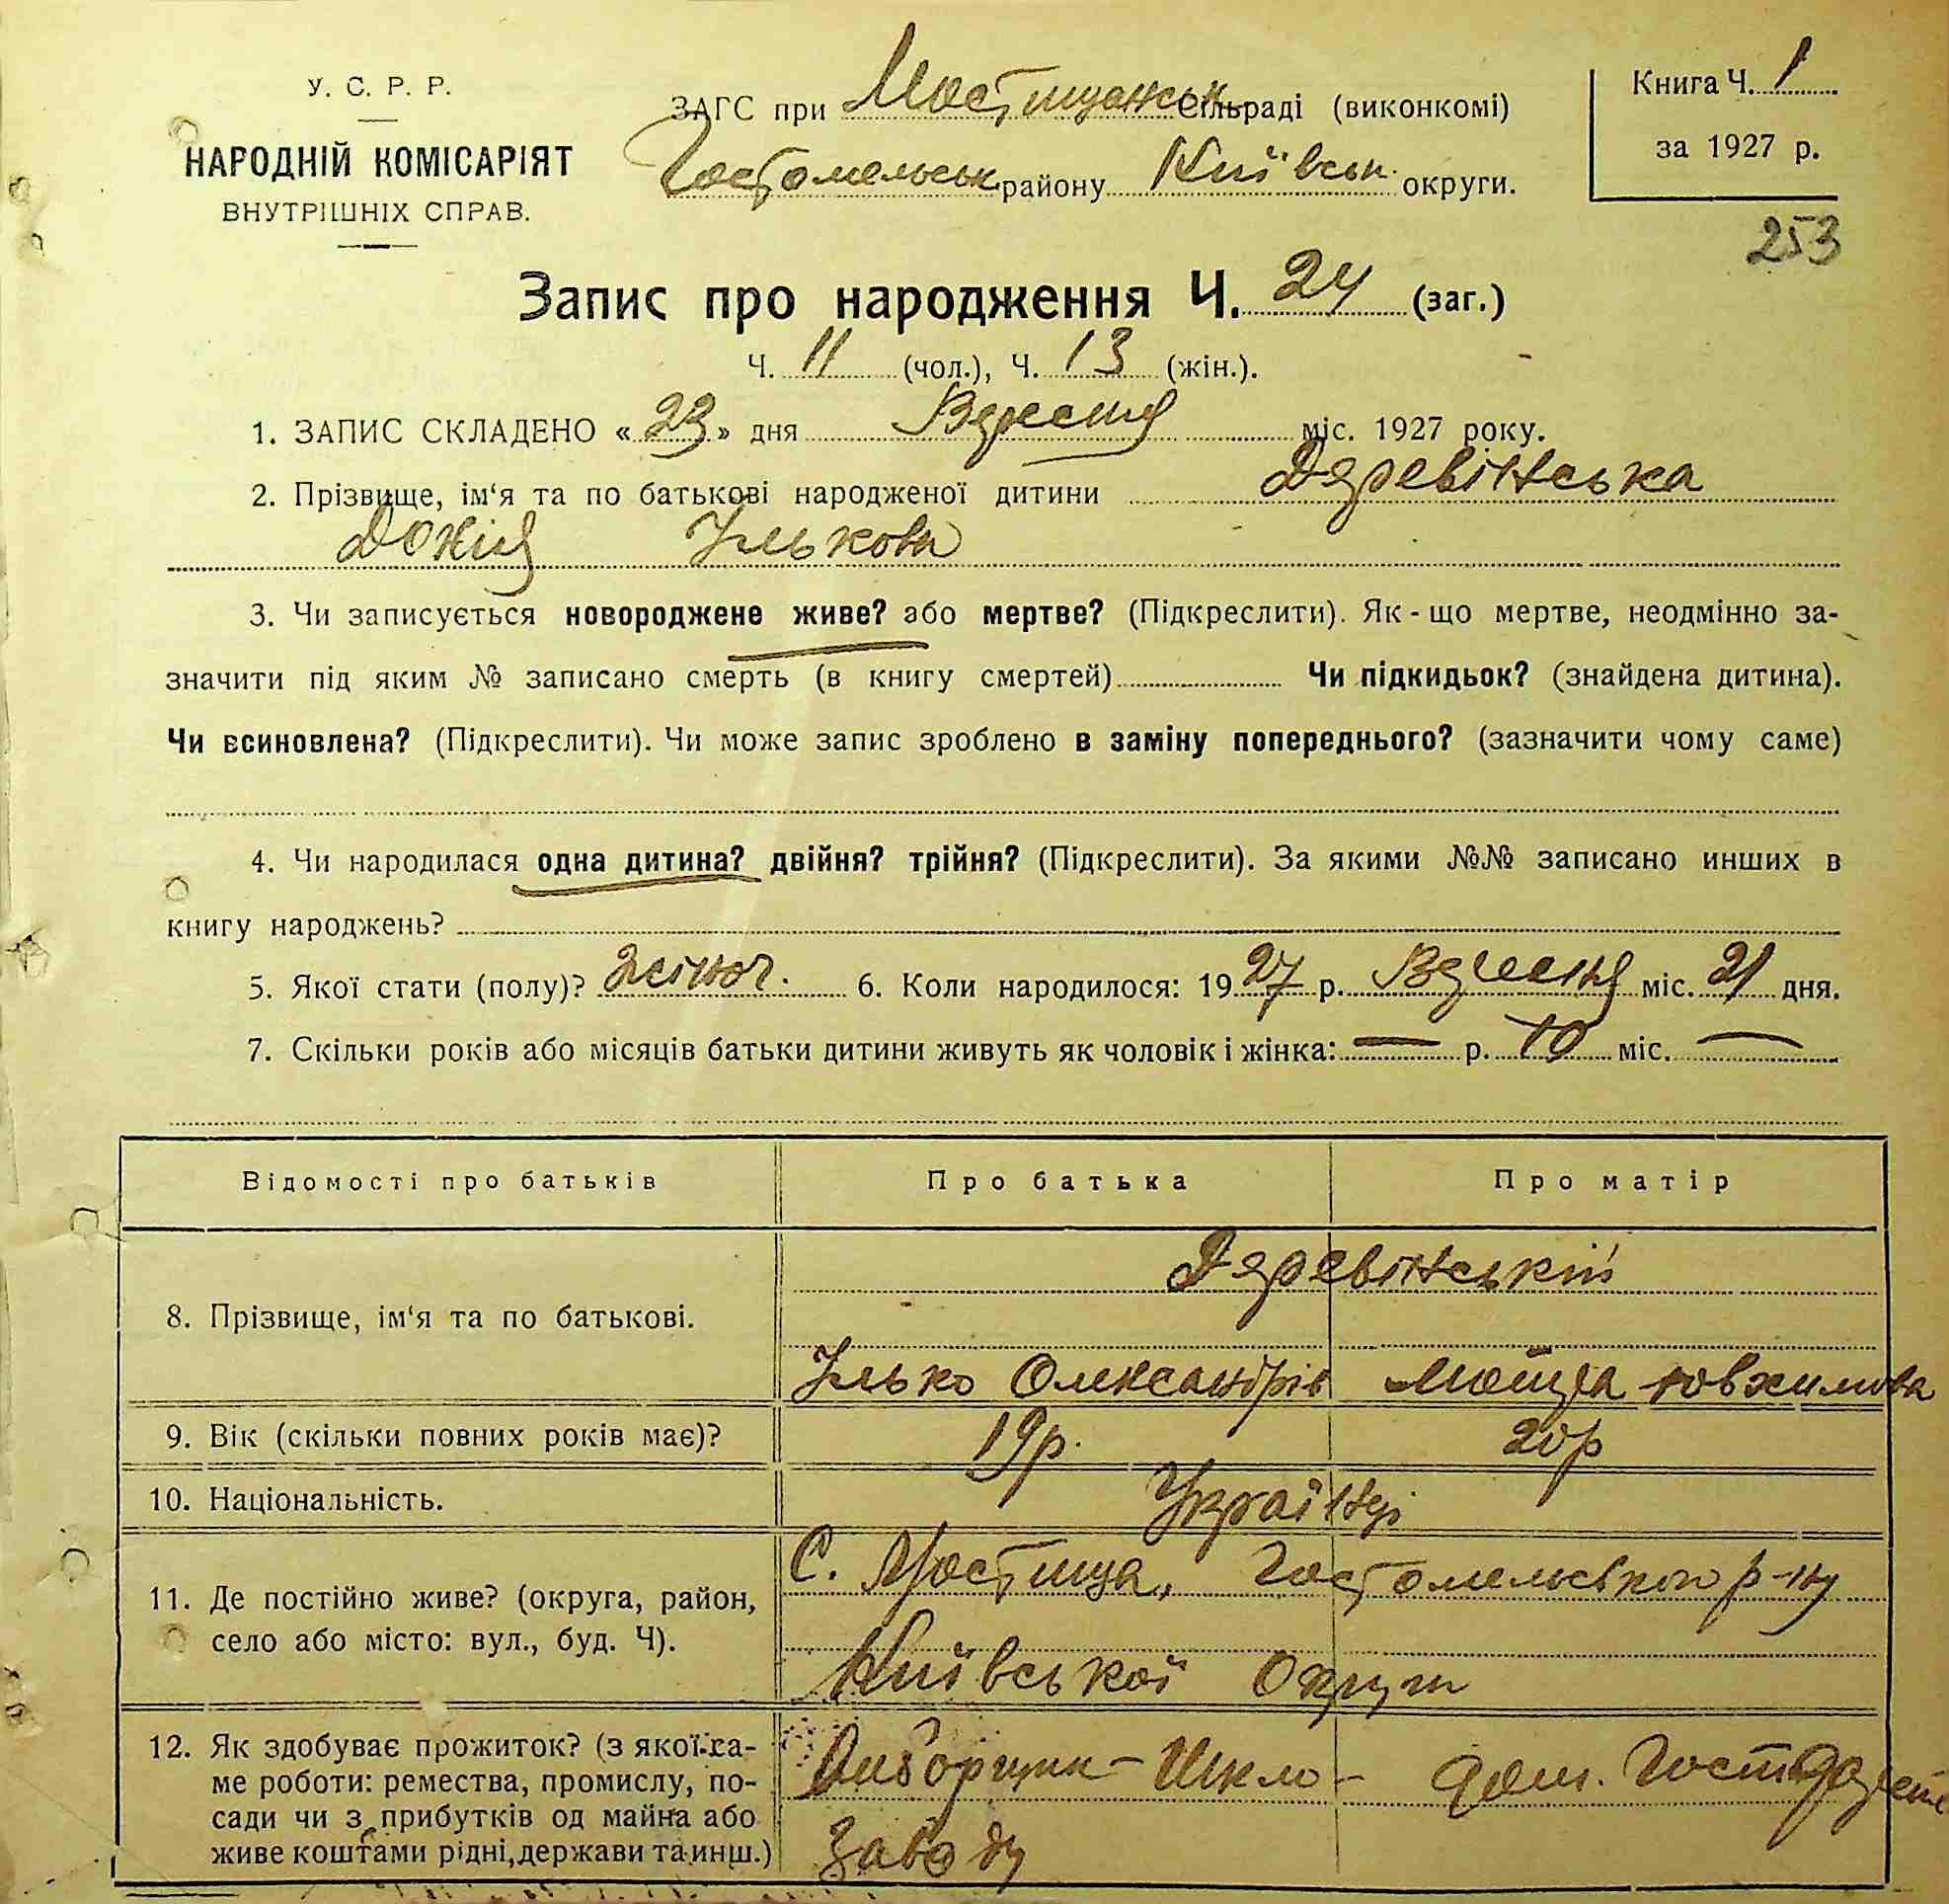 У. С. Р. Р.
НАРОДНІЙ КОМІСАРІЯТ
ВНУТРІШНІХ СПРАВ.
ЗАГС при Мостищанськ Сільраді (виконкомі)
Гостомельськ району Київськ. округи.
Книга Ч. 1
за 1927 р.
253
Запис про народження Ч. 24 (заг.)
Ч. 11 (чол.), Ч. 13 (жін.).
1. ЗАПИС СКЛАДЕНО «23» дня Вересня міс. 1927 року.
2. Прізвище, ім'я та по батькові народженої дитини Деревінська
Докія Ількова
3. Чи записується новороджене живе? або мертве? (Підкреслити). Як-що мертве, неодмінно за-
значити під яким № записано смерть (в книгу смертей) Чи підкидьок? (знайдена дитина).
Чи всиновлена? (Підкреслити). Чи може запис зроблено в заміну попереднього? (зазначити чому саме)
4. Чи народилася одна дитина? двійня? трійня? (Підкреслити). За якими №№ записано инших в
книгу народжень?
5. Якої стати (полу)? жіноч. 6. Коли народилося: 1927 р. Вересня міс. 21 дня.
7. Скільки років або місяців батьки дитини живуть як чоловік і жінка: — р. 10 міс. —
Відомості про батьків Про батька Про матір
Деревінський
8. Прізвище, ім'я та по батькові.
Ілько Олександрів
9. Вік (скільки повних років має)? 19р. 20р
10. Національність. Українці
С. Мостище, Гостомельського р-ну
11. Де постійно живе? (округа, район,
село або місто: вул., буд. Ч).
Київської Округи
12. Як здобуває прожиток? (з якої са-
ме роботи: ремества, промислу, по-
сади чи з прибутків од майна або
живе коштами рідні, держави та инш.)
Виборщик - Шкло-
Заводу
дом.